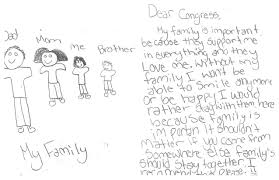 Dad
Mom
Me
Brother
My Family
Dear Congress,
My family is important
because they support me
in everything and they
love me. Without my
family I want be
able to smile anymore
or be happy I would
rather be with them here
because family is
important It shouldn't
matter if you come from
somewhere else family's
should stay together. I
this please. it